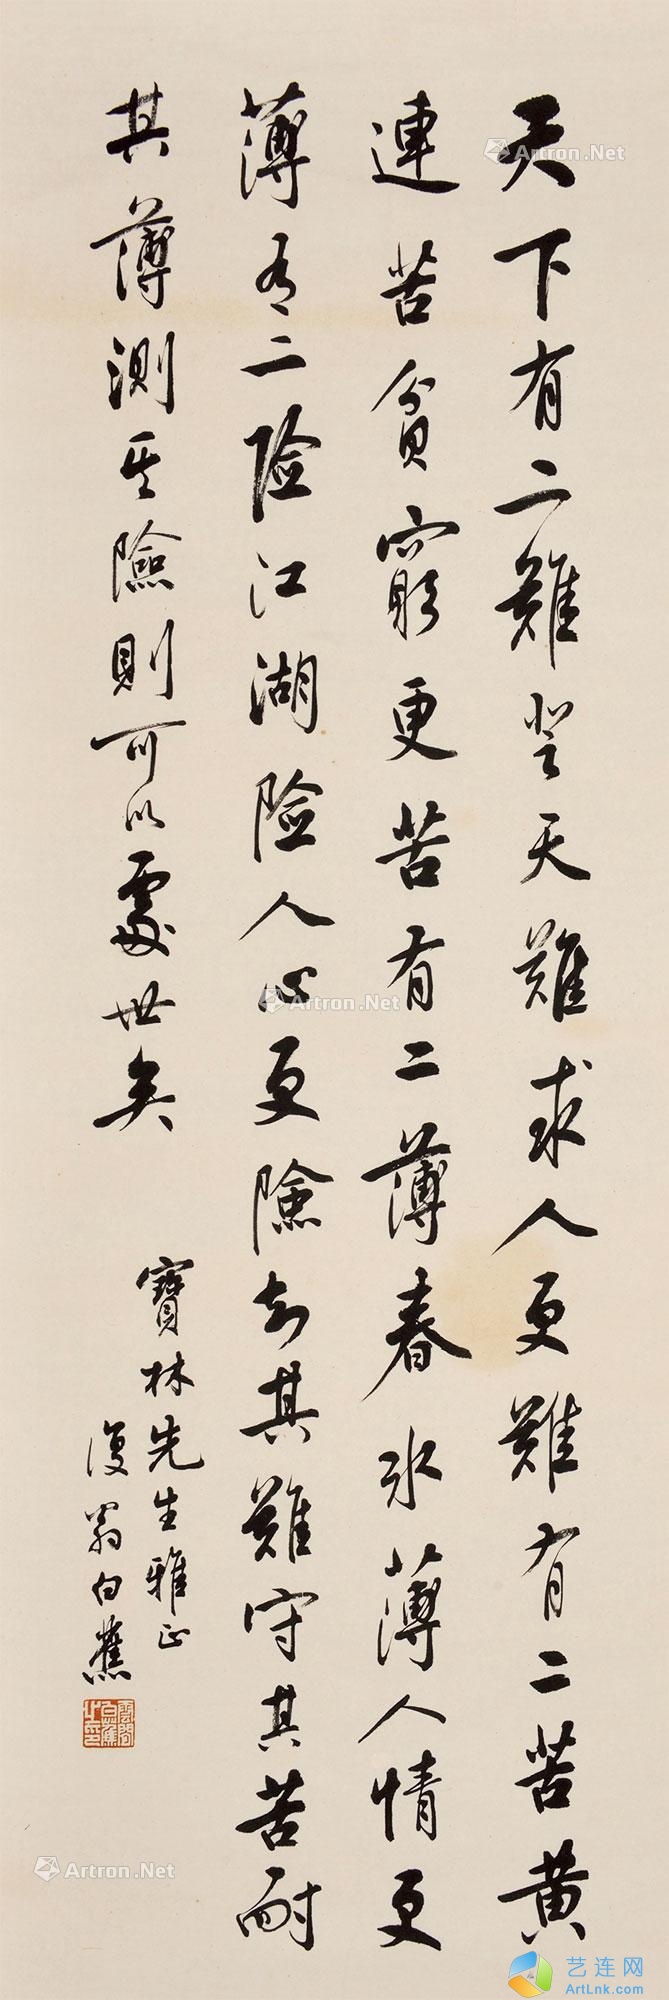 天下有二難登天難求人更難有二苦黃
連苦貧窮更苦有二薄春冰薄人情更
薄有二险江湖险人心更險知其難守其苦耐
其薄測其險則可以處世矣
寶林先生雅正
復翁白蕉
雲間白蕉之印
Artron.Net
Artron.Net
Artron.Net
Artron.Net
Artron.Net
艺连网
ArtLnk.com